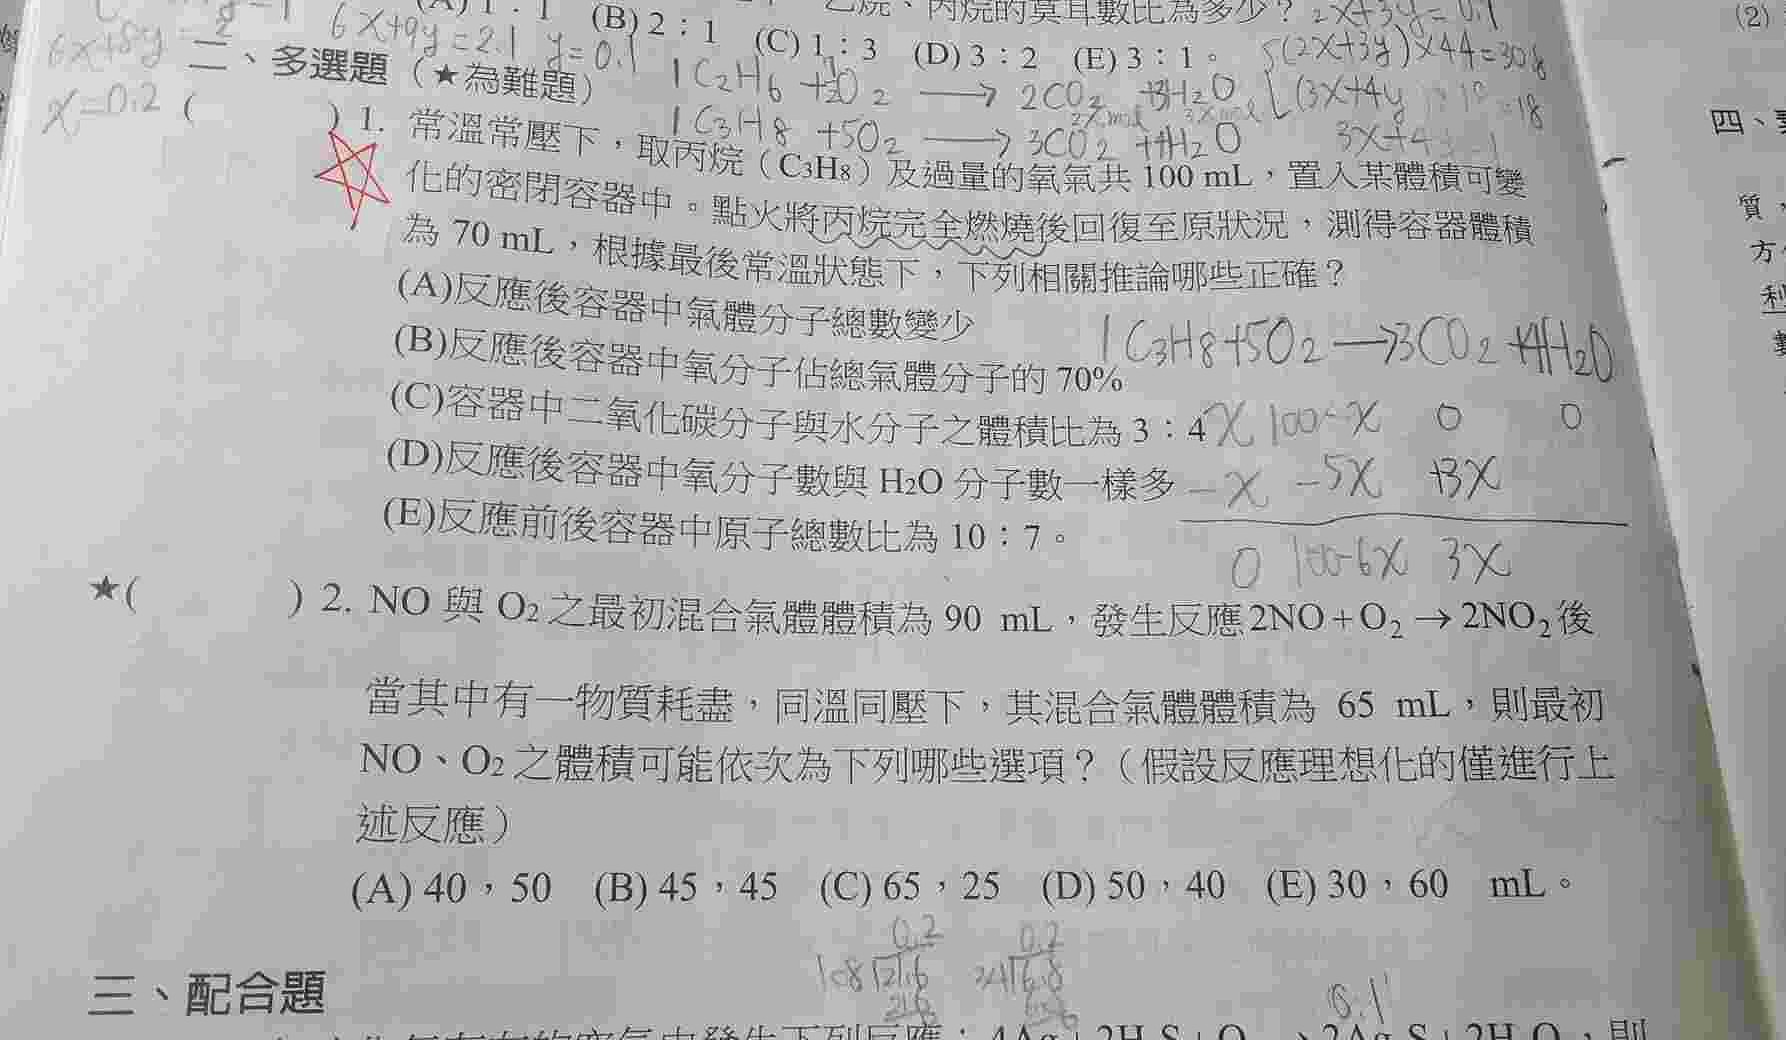 乙烷、丙烷的莫耳數比為多少? 2x+3y=0.1
(B) 2:1 (C) 1:3 (D) 3:2 (E) 3:1。
6x+8y=2
6x+9y=2.1 y=0.1
5(2x+3y)×44=308
x=0.2
二、多選題(★為難題)
1C2H6 + O2 → 2CO2 +3H2O
(3x+4y =18
1C3H8 +5O2 → 3CO2 +4H2O
( ) 1. 常溫常壓下,取丙烷(C3H8)及過量的氧氣共 100 mL,置入某體積可變
化的密閉容器中。點火將丙烷完全燃燒後回復至原狀況,測得容器體積
為 70 mL,根據最後常溫狀態下,下列相關推論哪些正確?
(A)反應後容器中氣體分子總數變少
(B)反應後容器中氧分子佔總氣體分子的 70%
(C)容器中二氧化碳分子與水分子之體積比為 3:4
(D)反應後容器中氧分子數與 H2O 分子數一樣多
(E)反應前後容器中原子總數比為 10:7。
1C3H8+5O2→3CO2+4H2O
x 100-x 0 0
-x -5x +3x
0 100-6x 3x
★( ) 2. NO 與 O2 之最初混合氣體體積為 90 mL,發生反應2NO+O2→2NO2後
當其中有一物質耗盡,同溫同壓下,其混合氣體體積為 65 mL,則最初
NO、O2 之體積可能依次為下列哪些選項?(假設反應理想化的僅進行上
述反應)
(A) 40,50 (B) 45,45 (C) 65,25 (D) 50,40 (E) 30,60 mL。
0.2 0.2
108 21.6 34 6.8
0.1
三、配合題
(2)
四、
質,
方